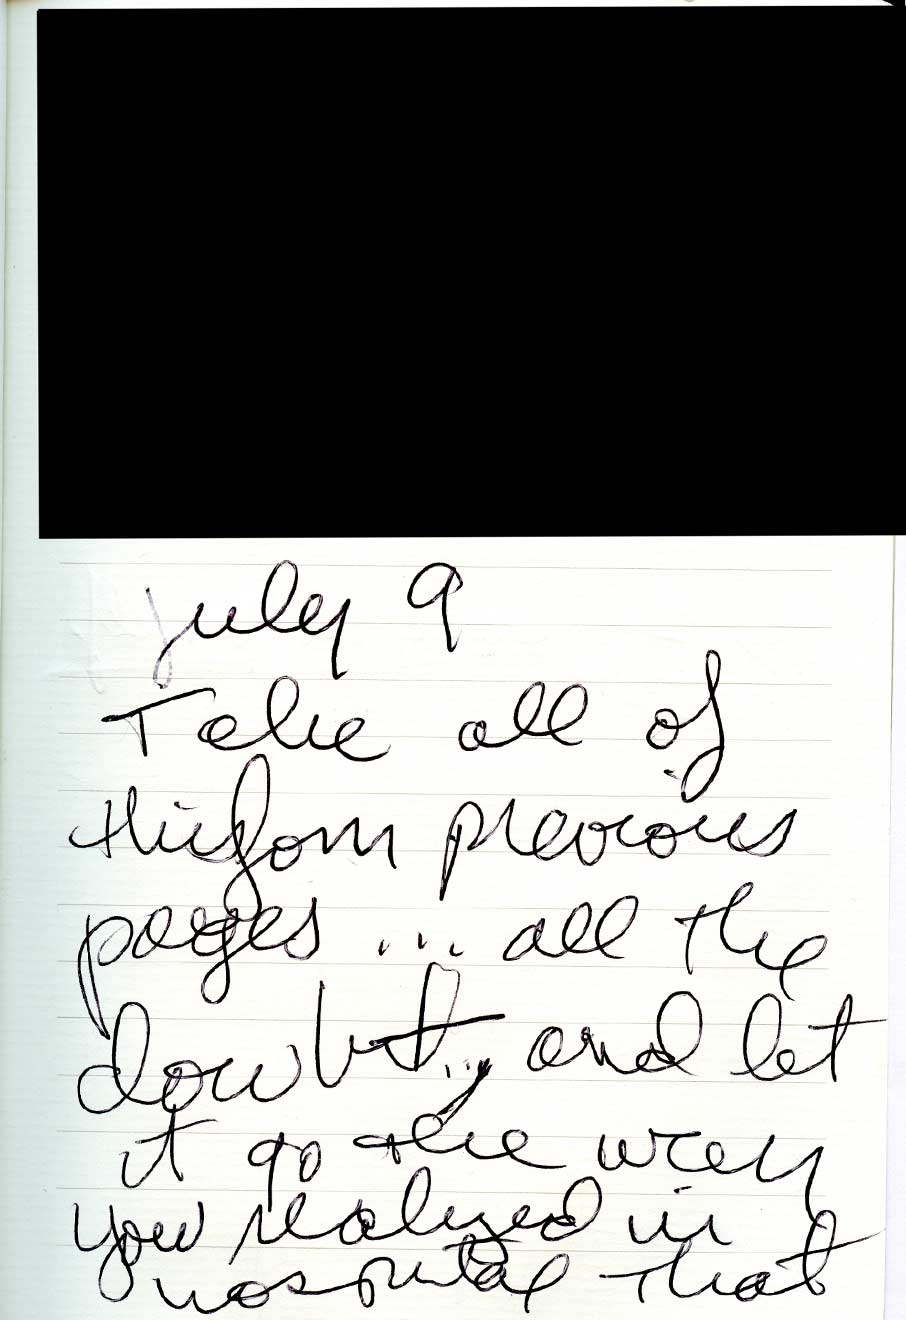 July 9
Take all of
this from previous
pages ... all the
doubt ... and let
it go the way
you realized in
hospital that